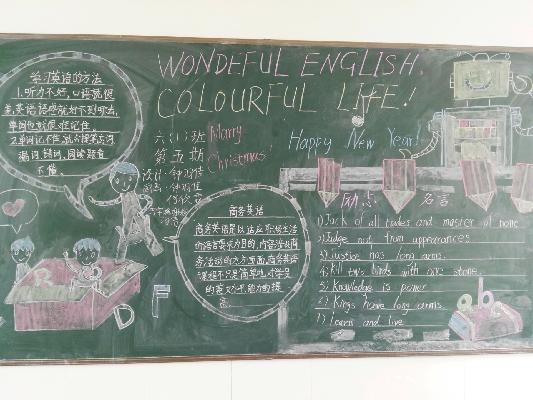 WONDEFUL ENGLISH,
COLOURFUL LIFE!
学习英语的方法
1.听力不好,口语就很
差,英语语感就好不到哪去,
单词也就很难记住。
2.单词记不住,就会提笔忘词,
漏词、错词,阅读题看
不懂。
六(1)班
第五期
Marry
Christmas!
Happy New Year!
商务英语
商务英语是以适应职场生活
的语言要求为目的,内容涉及商
务活动的方方面面。商务英语
课程不只是简单地对学员
的
能力的提
高
励志 名言
1) Jack of all trades and master of none
2) Judge not from appearances
3) Justice has long arms.
4) Kill two birds with one stone.
5) Knowledge is power
6) Kings have long arms.
7) Learn and live
R
D
F